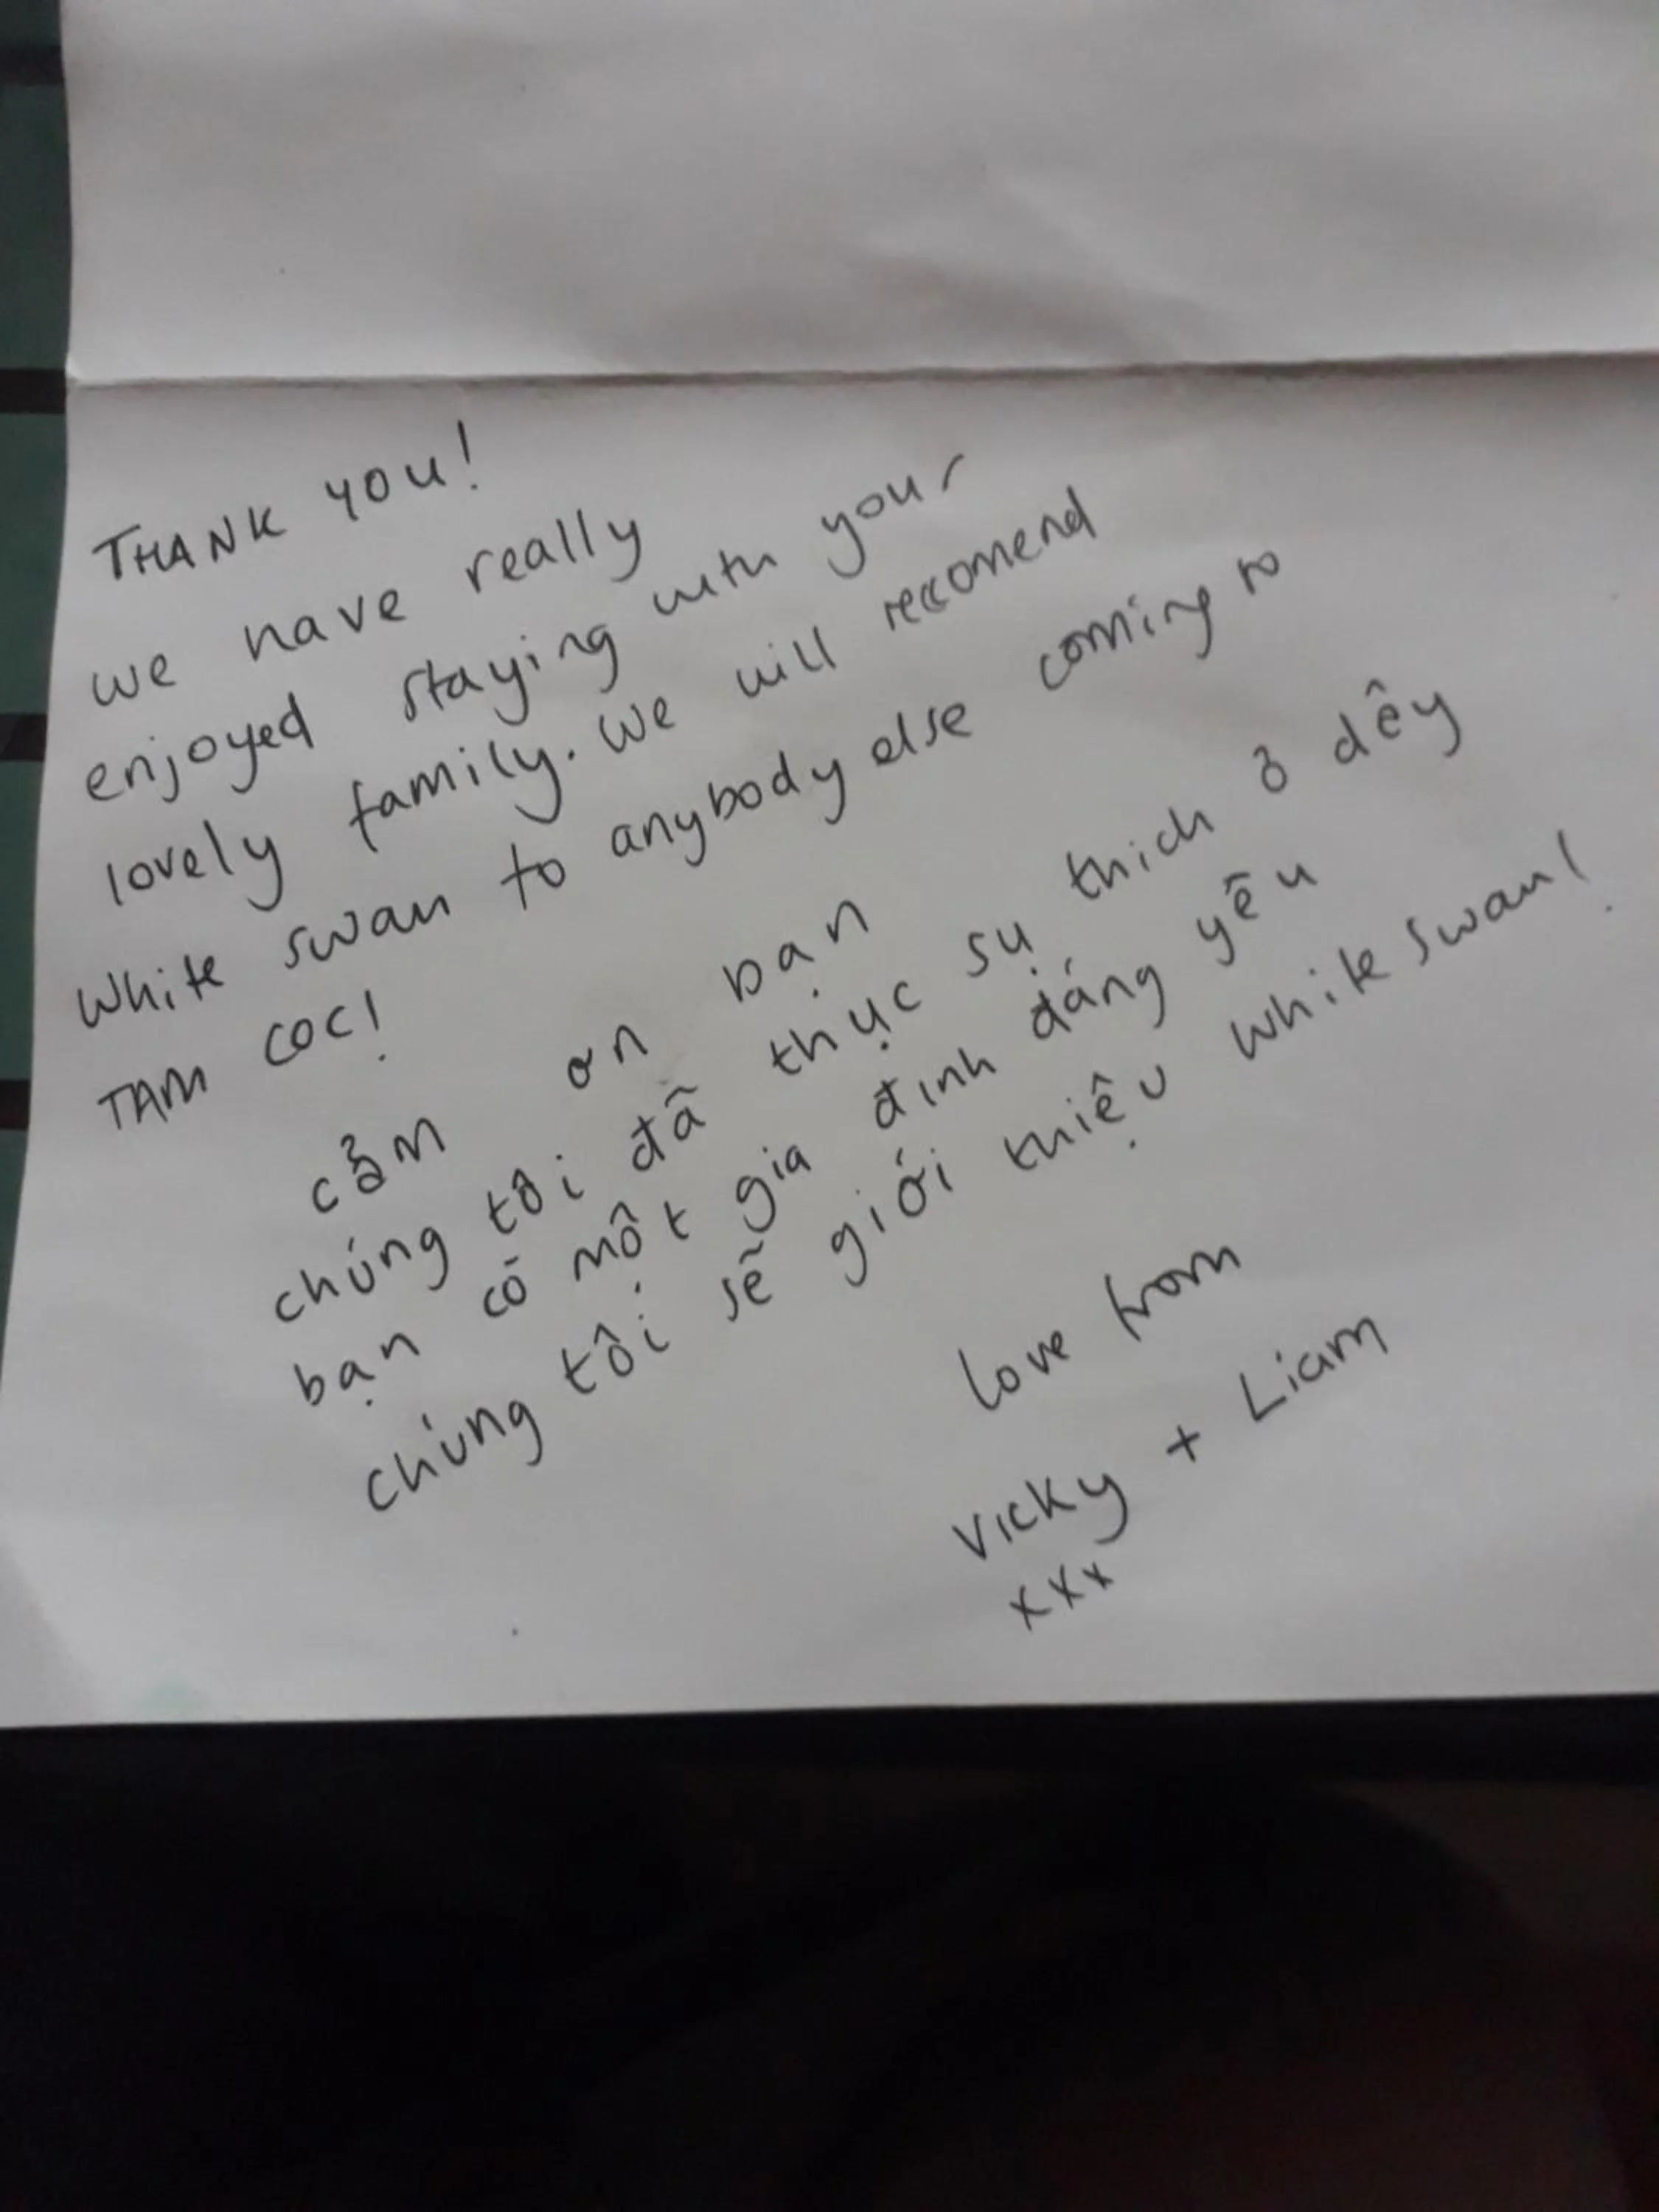 THANK YOU!
we have really
enjoyed staying with your
lovely family. We will reccomend
White swan to anybody else coming to
TAM COC!
cảm ơn bạn
chúng tôi đã thực sụ thich ở dêy
bạn có một gia đinh đáng yêu
chúng tôi sẽ giới thiệu white swan!
love from
Vicky + Liam
xxx